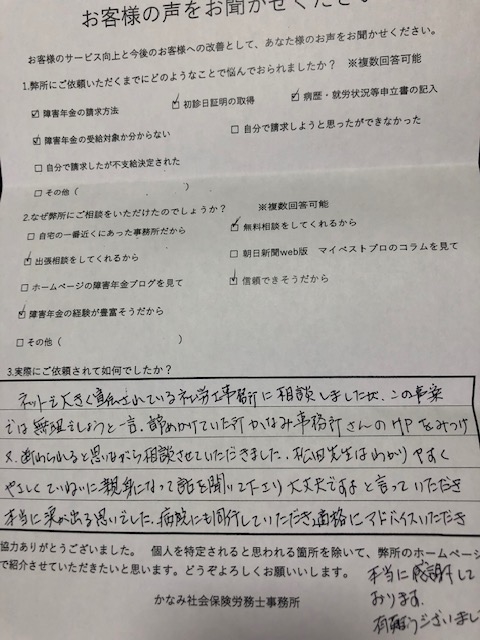 お客様の声をお聞かせください
お客様のサービス向上と今後のお客様への改善として、あなた様のお声をお聞かせください。
1.弊所にご依頼いただくまでにどのようなことで悩んでおられましたか？ ※複数回答可能
☑ 障害年金の請求方法 ☑ 初診日証明の取得 ☑ 病歴・就労状況等申立書の記入
☑ 障害年金の受給対象か分からない □ 自分で請求しようと思ったができなかった
□ 自分で請求したが不支給決定された
□ その他（ ）
2.なぜ弊所にご相談をいただけたのでしょうか？ ※複数回答可能
□ 自宅の一番近くにあった事務所だから ☑ 無料相談をしてくれるから
☑ 出張相談をしてくれるから □ 朝日新聞web版 マイベストプロのコラムを見て
□ ホームページの障害年金ブログを見て ☑ 信頼できそうだから
☑ 障害年金の経験が豊富そうだから
□ その他（ ）
3.実際にご依頼されて如何でしたか？
ネットで大きく宣伝されている社労士事務所に相談しましたが、この事案
では無理でしょうと一言、諦めかけていた所かなみ事務所さんのHPをみつけ
又、断わられると思いながら相談させていただきました。松田先生はわかりやすく
やさしくていねいに親身になって話を聞いて下さり大丈夫ですよと言っていただき
本当に涙が出る思いでした。病院にも同行していただき適格にアドバイスいただき
本当に感謝して
おります。
有難うございまし
協力ありがとうございました。 個人を特定されると思われる箇所を除いて、弊所のホームページ
で紹介させていただきたいと思います。どうぞよろしくお願いします。
かなみ社会保険労務士事務所